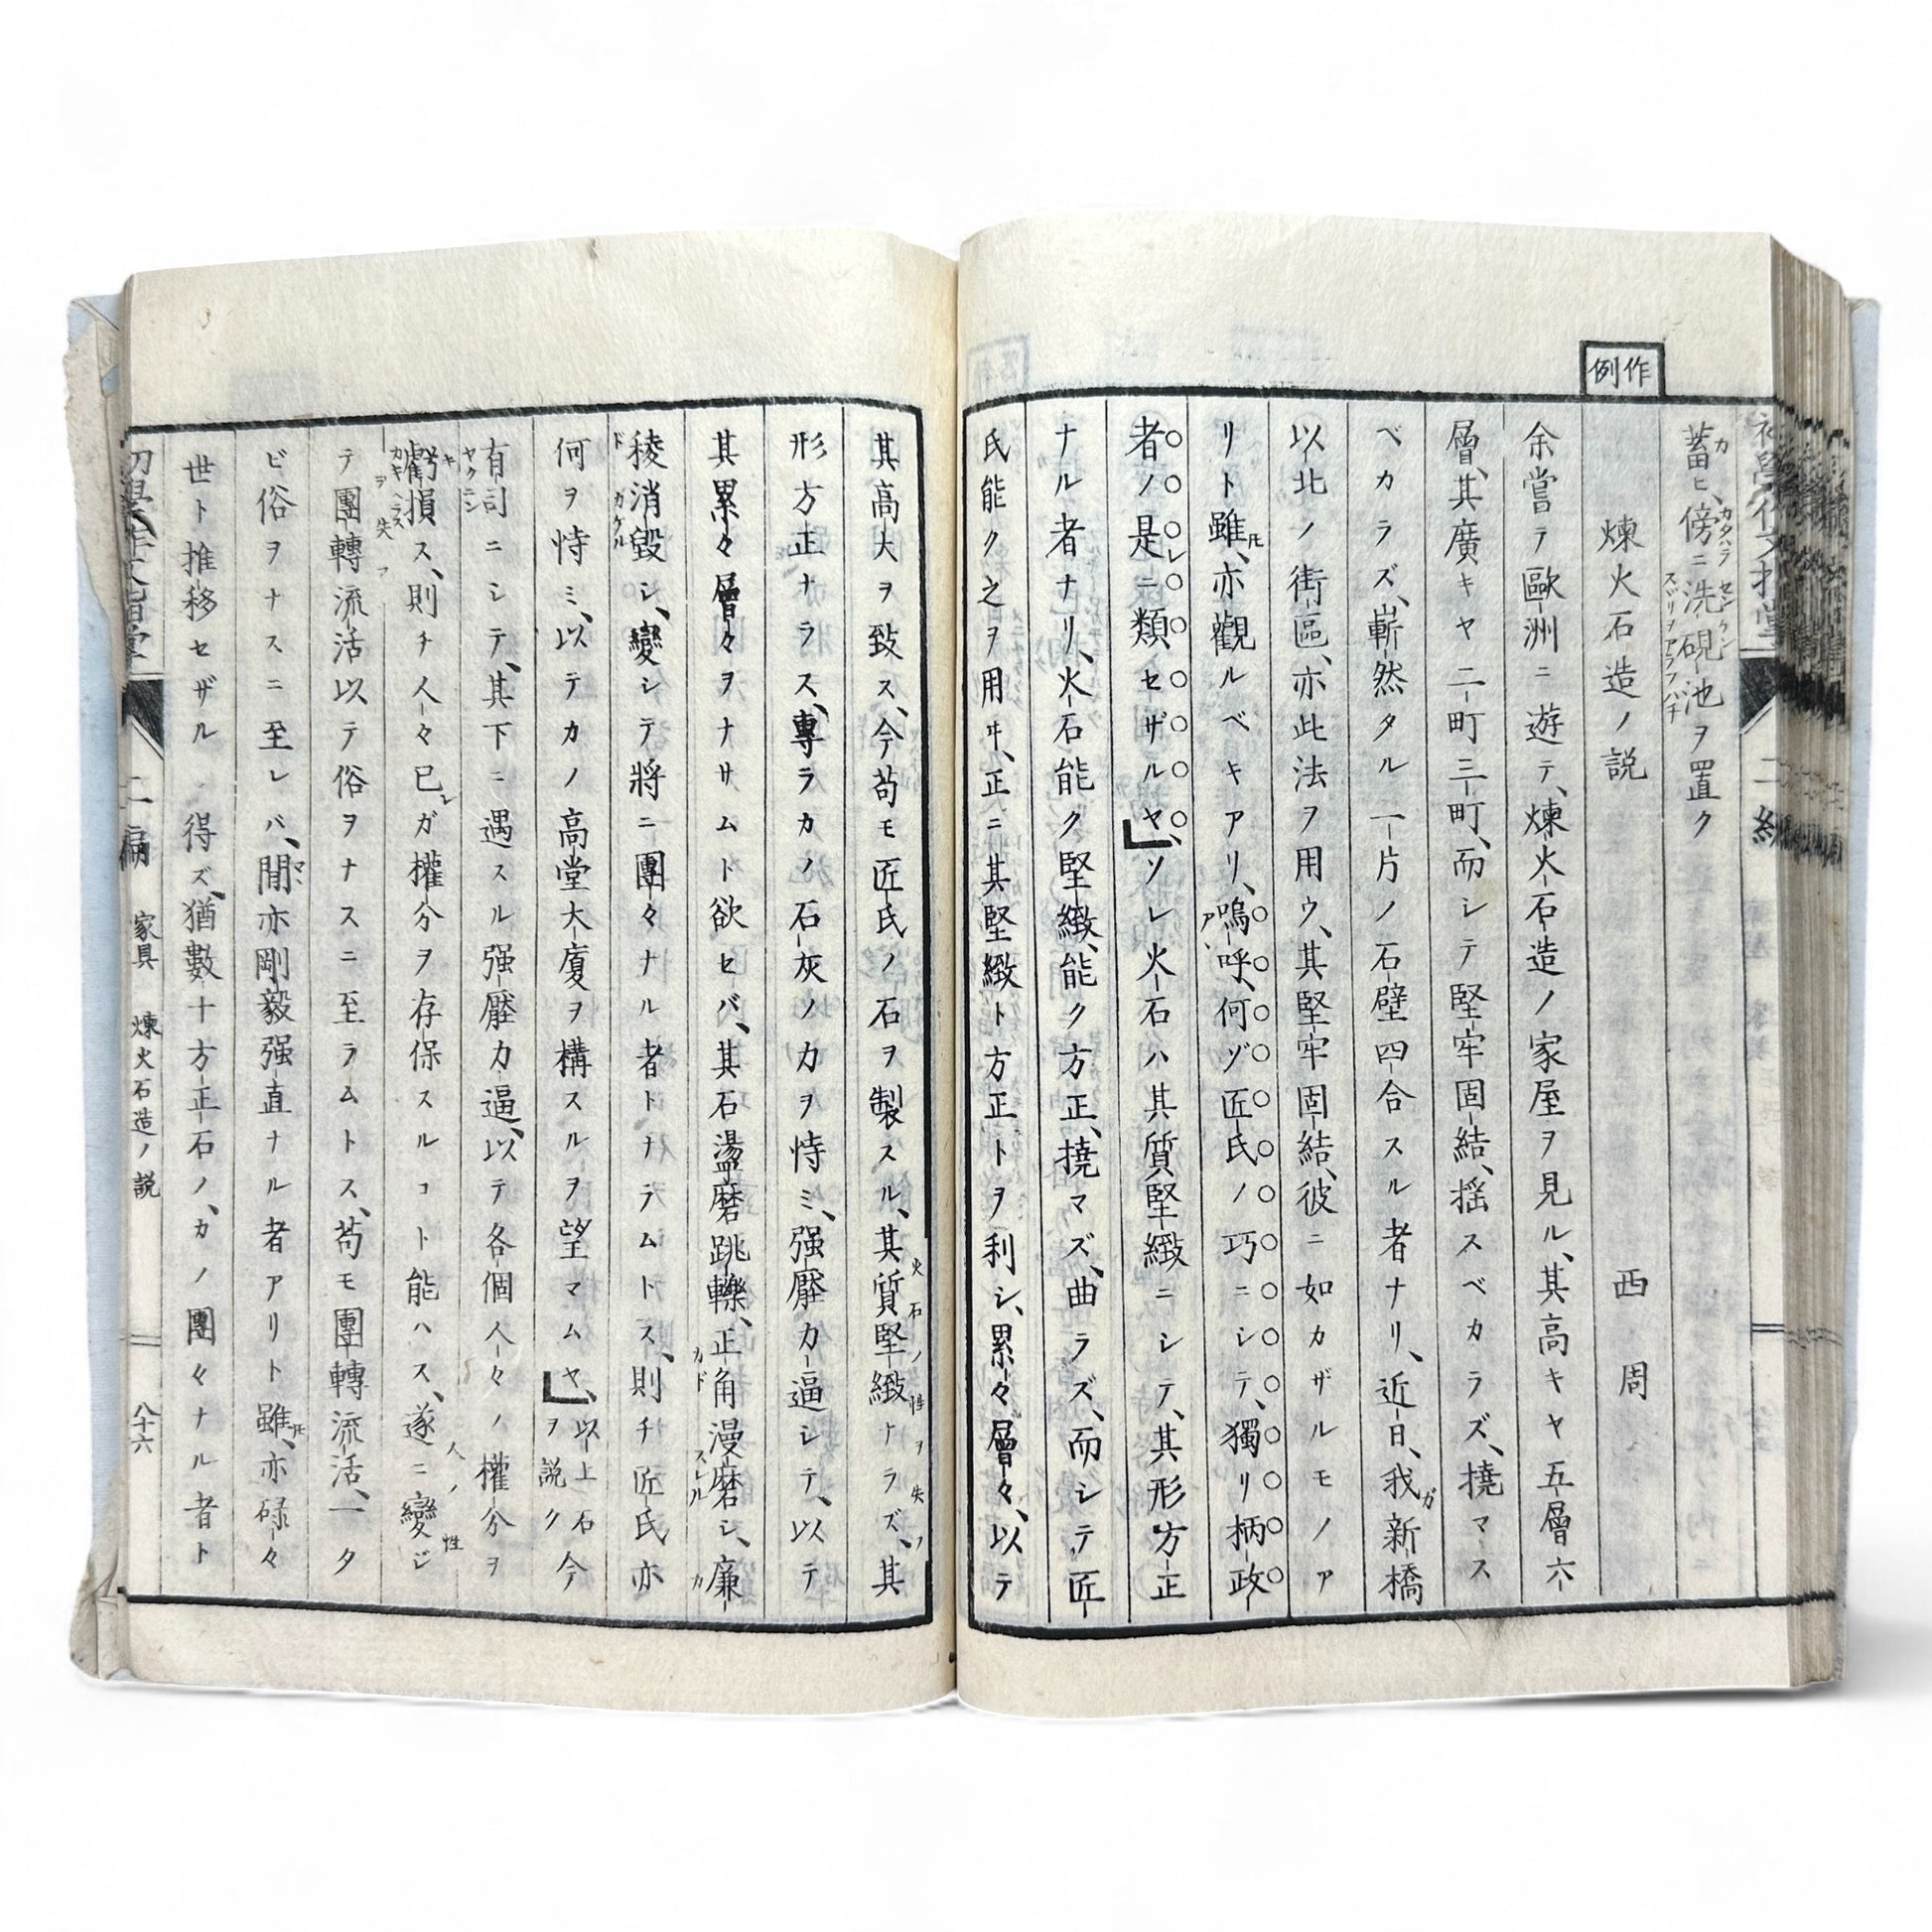 例作
蓄ヒ、傍ニ洗硯池ヲ置ク
煉火石造ノ説 西周
余嘗テ歐洲ニ遊テ、煉火石造ノ家屋ヲ見ル、其高キヤ五層六
層、其廣キヤ二町三町、而シテ堅牢固結、揺スベカラズ、撓マス
ベカラズ、嶄然タル一片ノ石壁四合スル者ナリ、近日、我新橋
以北ノ街區、亦此法ヲ用ウ、其堅牢固結、彼ニ如カザルモノア
リト雖𪜈、亦觀ルベキアリ、嗚呼、何ゾ匠氏ノ巧ニシテ、獨リ柄政
者ノ是ニ類セザルヤ、ソレ火石ハ其質堅緻ニシテ、其形方正
ナル者ナリ、火石能ク堅緻、能ク方正、撓マズ、曲ラズ、而シテ匠
氏能ク之ヲ用ヰ、正ニ其堅緻ト方正トヲ利シ、累々層々、以テ
其高大ヲ致ス、今苟モ匠氏ノ石ヲ製スル、其質堅緻ナラズ、其
火石ノ性ヲ失フ
形方正ナラス、專ラカノ石灰ノ力ヲ恃ミ、强壓力逼シテ、以テ
其累々層々ヲナサムト欲セバ、其石盪磨跳轢、正角漫磨シ、廉
稜消毀シ、變シテ將ニ團々ナル者トナラムトス、則チ匠氏亦
何ヲ恃ミ、以テカノ高堂大廈ヲ構スルヲ望マムヤ、以上石ヲ説ク今
有司ニシテ、其下ニ遇スル强壓力逼、以テ各個人々ノ權分ヲ
虧損ス、則チ人々已ガ權分ヲ存保スルコト能ハス、遂ニ變ジ
人ノ性ヲ失フ
テ團轉流活以テ俗ヲナスニ至ラムトス、苟モ團轉流活、一タ
ビ俗ヲナスニ至レバ、間亦剛毅强直ナル者アリト雖𪜈、亦碌々
世ト推移セザル得ズ、猶數十方正石ノ、カノ團々ナル者ト
二編 家具 煉火石造ノ説 八十六